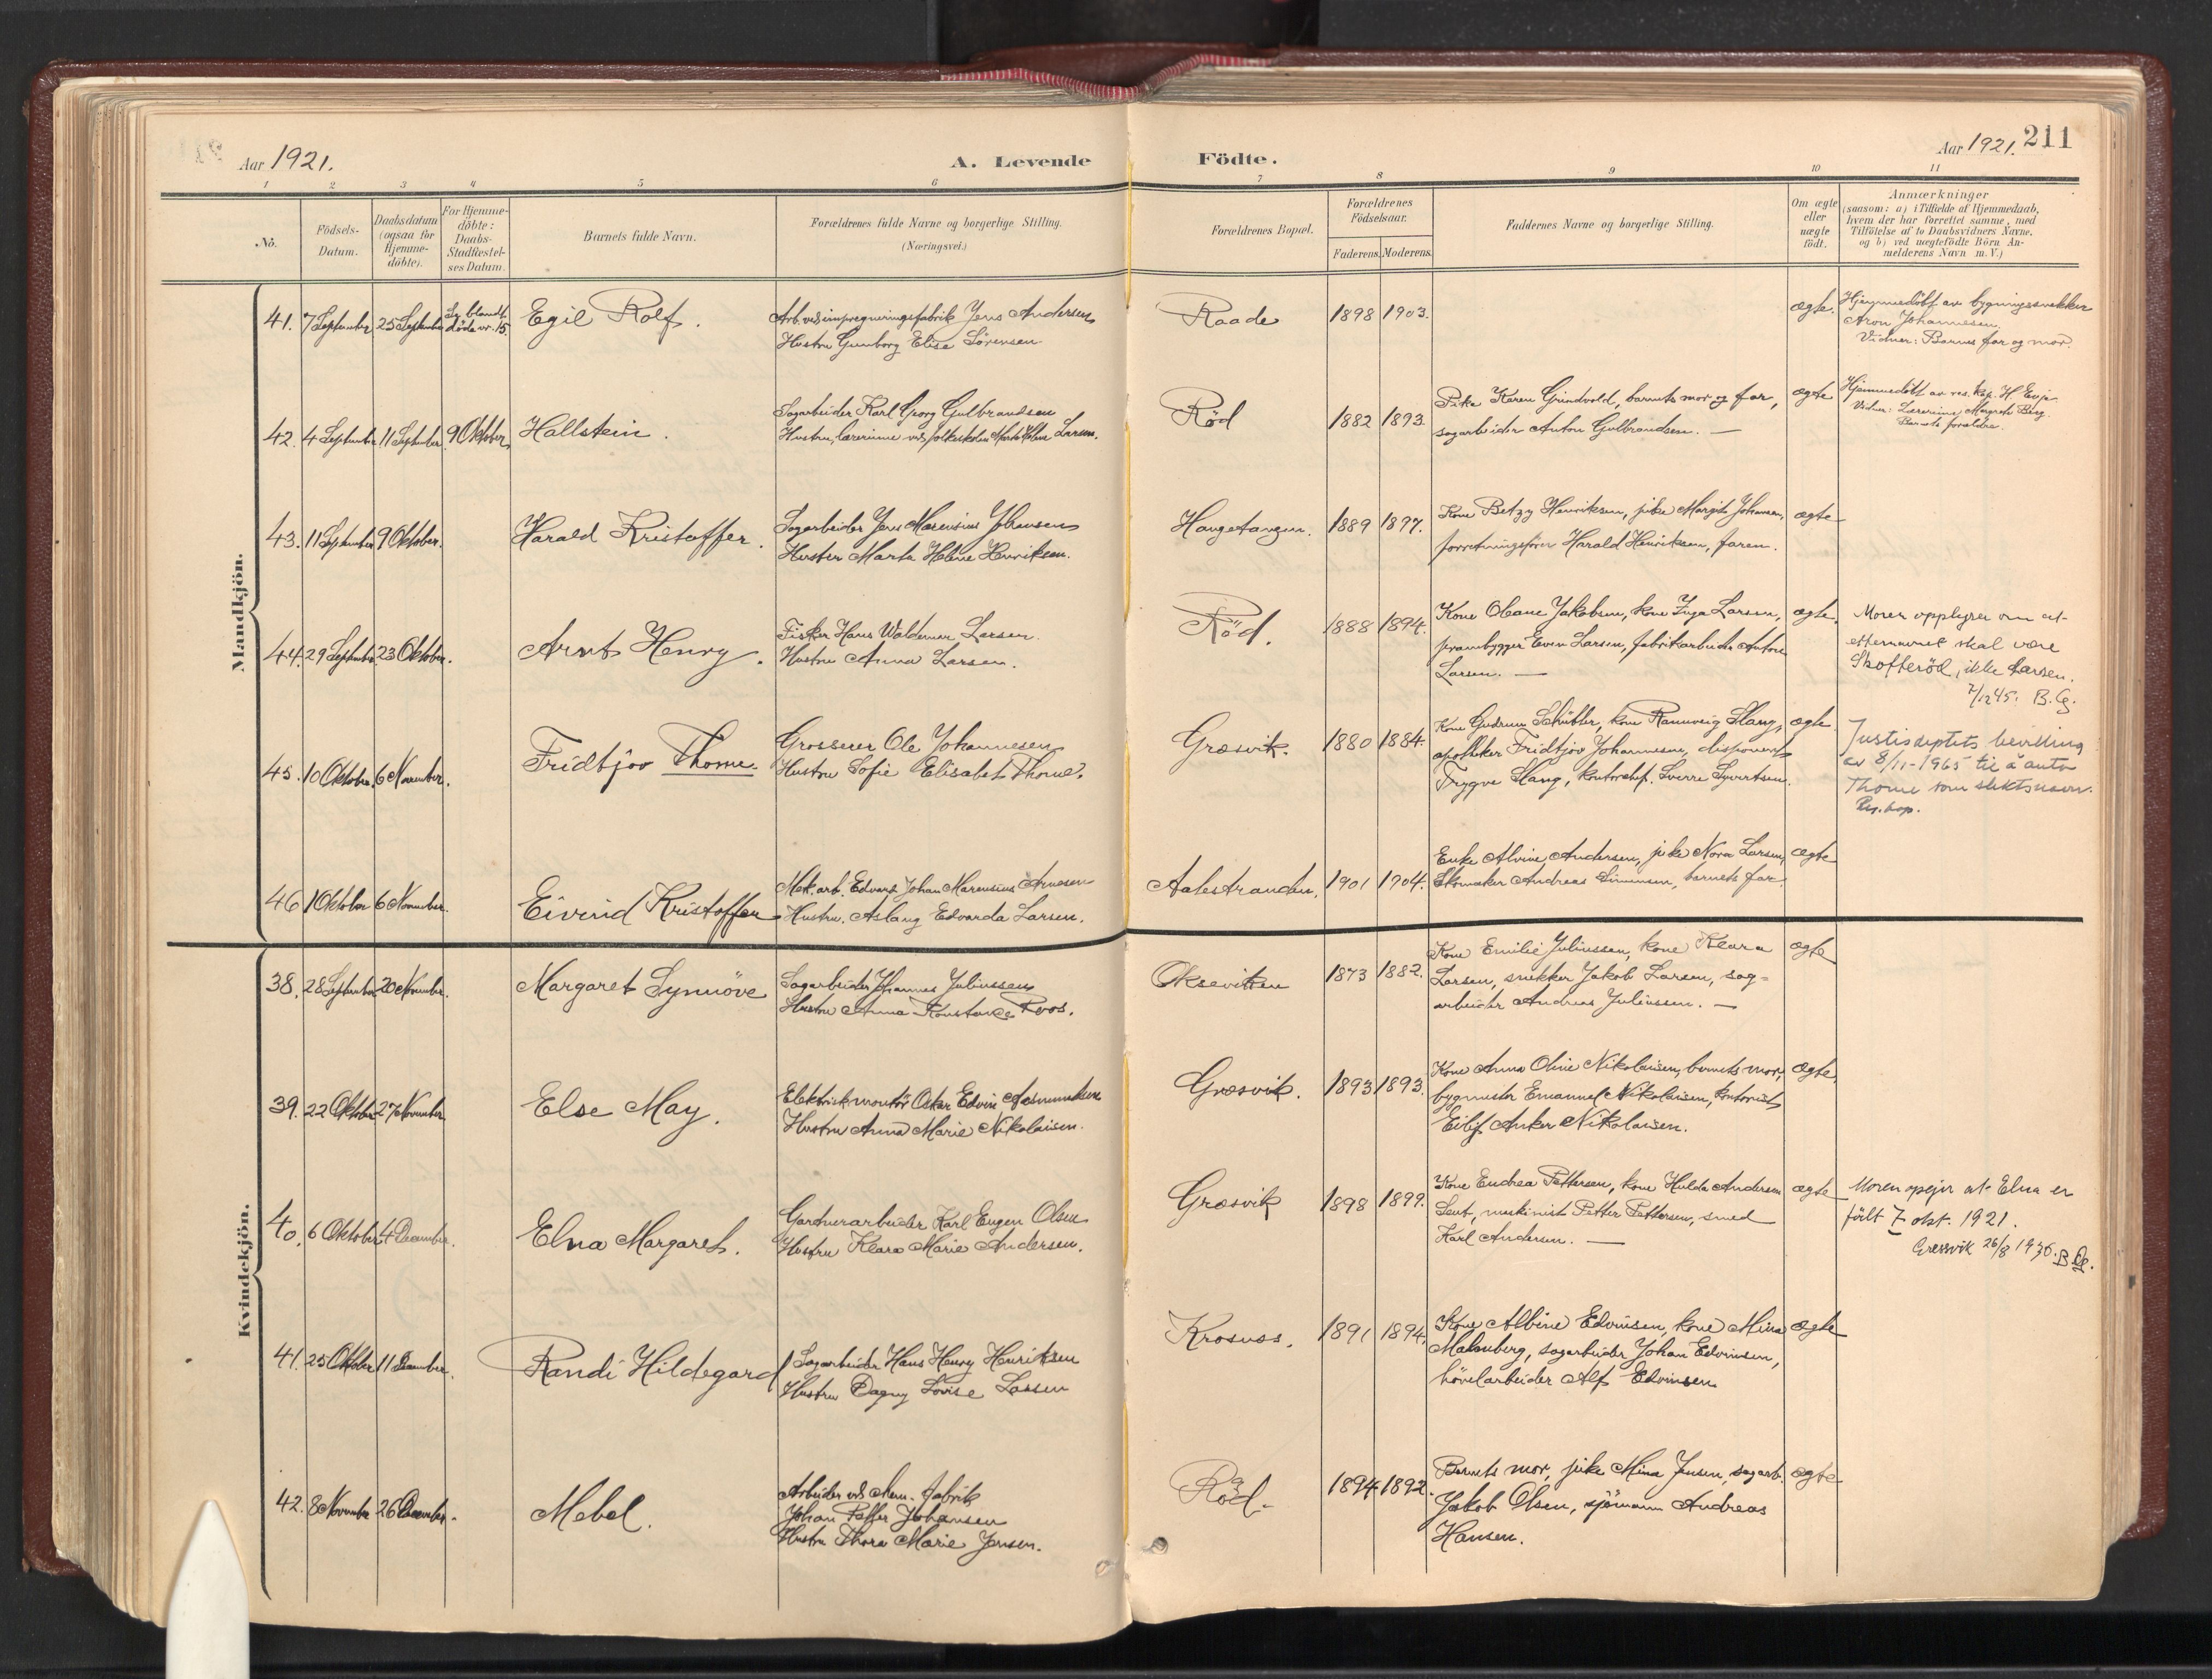 Aar 1921.
A. Levende
Födte.
Aar 1921.
211
1 2 3 4 5 6 7 8 9 10 11
No.
Födsels-
Datum.
Daabsdatum
(ogsaa for
Hjemme-
döbte).
For Hjemme-
döbte:
Daabs-
Stadfæstel-
ses Datum.
Barnets fulde Navn.
Forældrenes fulde Navne og borgerlige Stilling.
(Næringsvei.)
Forældrenes Bopæl.
Forældrenes
Födselsaar.
Faderens.
Moderens.
Faddernes Navne og borgerlige Stilling.
Om ægte
eller
uægte
födt.
Anmærkninger
(saasom: a) i Tilfælde af Hjemmedaab,
hvem der har forrettet samme, med
Tilföielse af to Daabsvidners Navne,
og b) ved uægtefödte Börn An-
melderens Navn m. V.)
Mandkjön.
41. 7 September 25 September
Se blandt
döde nr. 15.
Egil Rolf.
Arb. ved impregneringsfabrik Jens Andersen
Hustru Gunborg Elise Sörensen
Raade
1898 1903.
ægte.
Hjemmedöbt av bygningssnekker
Aron Johannesen.
Vidner: Barnets far og mor.
42. 4 September 11 September 9 Oktober
Hallstein.
Sagarbeider Karl Georg Gulbrandsen
Hustru, lærerinne ved folkeskolen Marta Larsen.
Röd
1882 1893.
Pike Karen Grindvold, barnets mor og far,
sagarbeider Anton Gulbrandsen. —
ægte
Hjemmedöbt av res. kap. H. Evje
Vidner: Lærerinne Margrete Berg.
Barnets forældre.
43. 11 September 9 Oktober.
Harald Kristoffer.
Sagarbeider Jens Marensius Johansen
Hustru Marta Helene Henriksen.
Haugetangen.
1889 1897.
Kone Betzy Henriksen, pike Margit Johansen,
forretningsförer Harald Henriksen, faren.
ægte
44. 29 September 23 Oktober.
Arnt Henry.
Fisker Hans Waldemar Larsen.
Hustru Anna Larsen.
Röd.
1888 1894.
Kone Oleane Jakobsen, kone Inga Larsen,
prambygger Even Larsen, fabrikarbeider Anton
Larsen. —
ægte.
Moren opplyser om at
etternavnet skal være
Skofteröd, ikke Larsen.
7/12 45. B.G.
45. 10 Oktober 6 November.
Fridtjov Thome.
Grosserer Ole Johannesen
Hustru Sofie Elisabet Thome.
Græsvik.
1880 1884.
Kone Gudrun Schübler, kone Rannveig Slang,
apotheker Fridtjov Johannesen, disponent
Trygve Slang, kontorchef Sverre Syvertsen.
ægte.
Justisdeptets bevilling
av 8/11-1965 til å anta
Thome som slektsnavn.
46 1 Oktober 6 November.
Eivind Kristoffer
Mek. arb. Edvard Johan Marensius Arnesen
Hustru. Aslaug Edvarda Larsen.
Aalestranden.
1901 1904.
Enke Alvine Andersen, pike Nora Larsen,
Skomaker Andreas Simensen, barnets far.
ægte
Kvindekjön.
38. 28 September 20 November.
Margaret Synnöve
Sagarbeider Johannes Juliussen
Hustru Anna Konstance Roos.
Oksevikken
1873 1882.
Kone Emilie Juliussen, kone Klara
Larsen, snekker Jakob Larsen, sag-
arbeider Andreas Juliussen. —
ægte
39. 22 Oktober 27 November
Else May.
Elektrisk montör Oskar Edvin Asmundsen
Hustru Anna Marie Nikolaisen.
Græsvik.
1893 1893.
Kone Anna Oline Nikolaisen, barnets mor,
bygmester Emanuel Nikolaisen, kontorist
Eilif Anker Nikolaisen.
ægte,
40. 6 Oktober 4 December.
Elna Margaret.
Gartnerarbeider Karl Eugen Olsen
Hustru Klara Marie Andersen.
Græsvik
1898 1899.
Kone Endrea Pettersen, kone Hulda Andersen
Laut, maskinist Petter Pettersen, smed
Karl Andersen. —
ægte
Moren opgir at Elna er
födt 7 okt. 1921.
Gressvik 26/8 1936. B.G.
41. 25 Oktober 11 December.
Randi Hildegard
Sagarbeider Hans Henry Henriksen
Hustru Dagny Lovise Larsen
Krosnæs.
1891 1894.
Kone Albine Edvinsen, kone Mina
Malmberg, sagarbeider Johan Edvinsen,
hövelarbeider Alf Edvinsen
ægte
42. 8 November 26 December.
Mebel.
Arbeider ved chem. fabrik
Johan Petter Johansen
Hustru Thora Marie Jensen.
Röd.
1894 1892.
Barnets mor, pike Mina Jensen, sagarb.
Jakob Olsen, sjömann Andreas
Hansen.
ægte